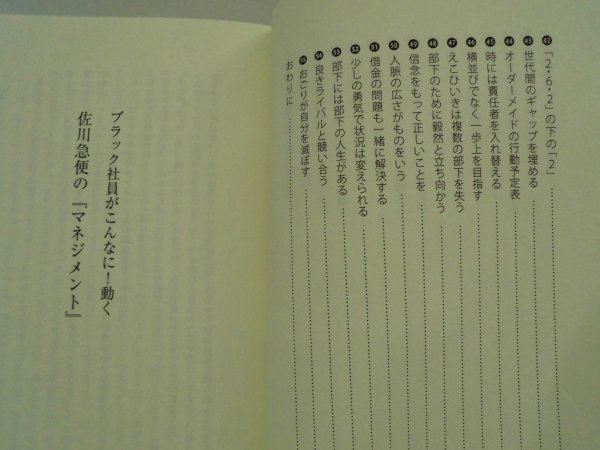 ㊷「2・6・2」の下の「2」
㊸世代間のギャップを埋める
㊹オーダーメイドの行動予定表
㊺時には責任者を入れ替える
㊻横並びでなく一歩上を目指す
㊼えこひいきは複数の部下を失う
㊽部下のために毅然と立ち向かう
㊾信念をもって正しいことを
㊿人脈の広さがものをいう
51借金の問題も一緒に解決する
52少しの勇気で状況は変えられる
53部下には部下の人生がある
54良きライバルと競い合う
55おごりが自分を滅ぼす
おわりに
ブラック社員がこんなに!動く
佐川急便の『マネジメント』